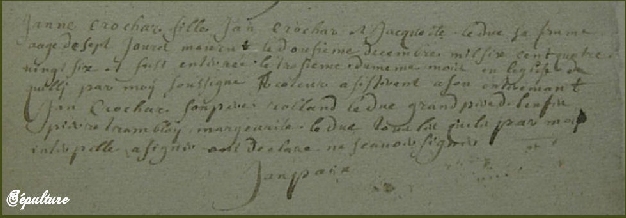 Janne Crochar fille Jan Crochar et Jacquette leduc sa fame
aage de sept Jours mourut le dousieme decembre mil six cent quatre
vingt six et fust enterree le tresieme du meme mois en leglise de
par moy soussigne assisterent a son enterrement
Jan Crochar son pere rolland leduc grand pere
pierre tramblay margueritte leduc tous les par moy
interpelle a signer ont declare ne scavoir signer
Jan
Sépulture